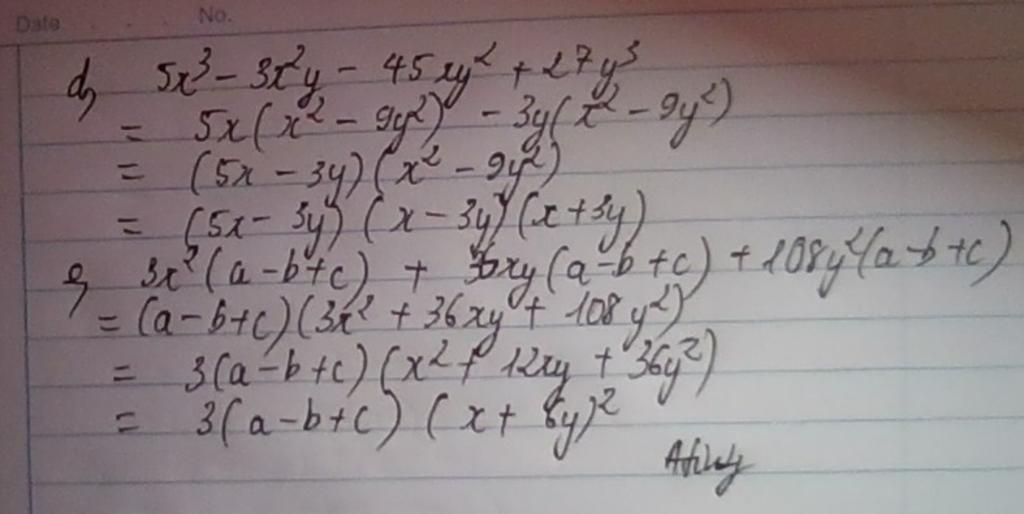 Date No.
d, 5x³ - 3x²y - 45xy² + 27y³
= 5x(x² - 9y²) - 3y(x² - 9y²)
= (5x - 3y)(x² - 9y²)
= (5x - 3y)(x - 3y)(x + 3y)
e, 3x²(a - b + c) + 36xy(a - b + c) + 108y²(a - b + c)
= (a - b + c)(3x² + 36xy + 108y²)
= 3(a - b + c)(x² + 12xy + 36y²)
= 3(a - b + c)(x + 6y)²